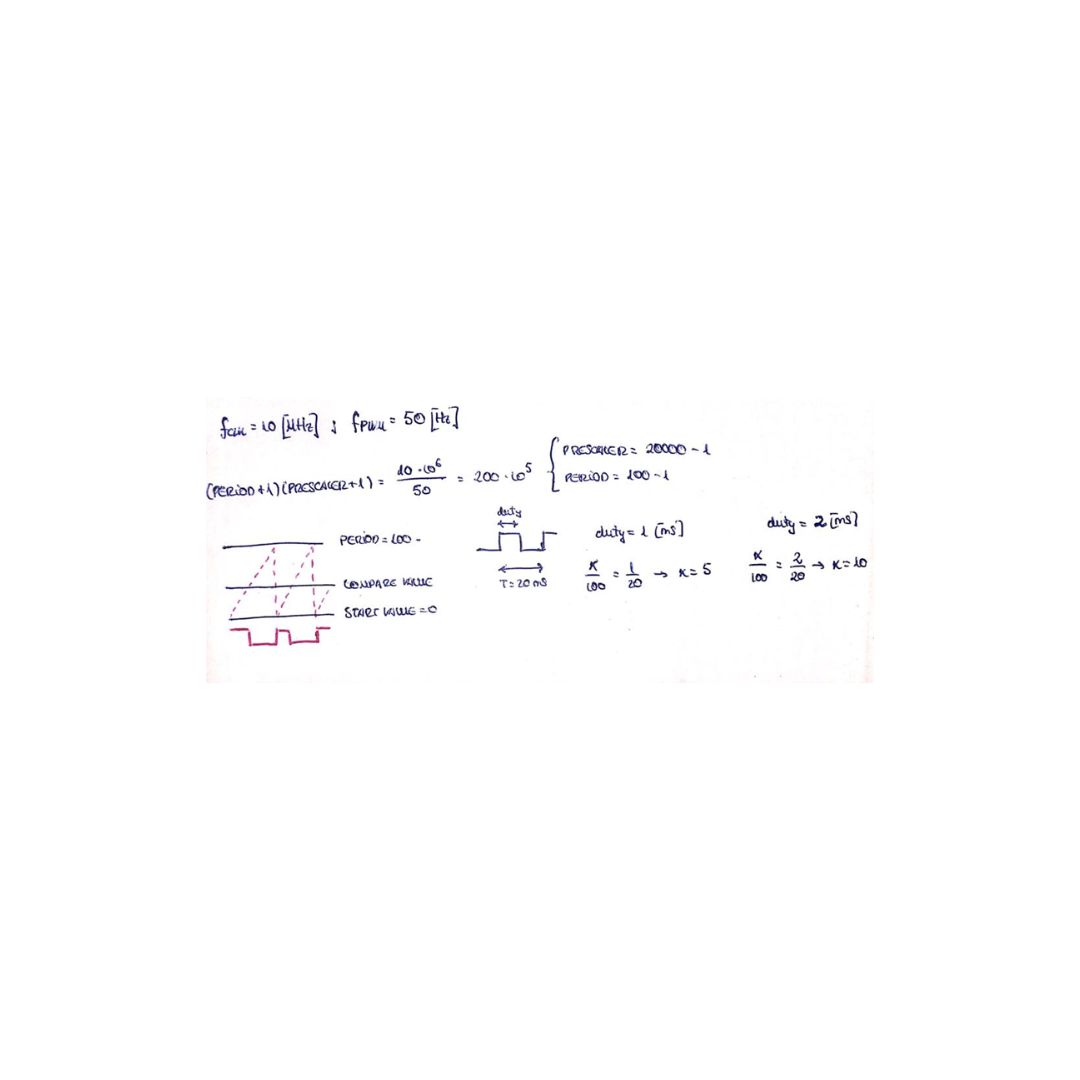 fCLK = 10 [MHz] ; fPWM = 50 [Hz]
(PERIOD+1)(PRESCALER+1) = 10·10⁶ / 50 = 200·10⁵ { PRESCALER = 20000 - 1
PERIOD = 100 - 1
PERIOD = 100 -
COMPARE VALUE
START VALUE = 0
duty
T = 20 ms
duty = 1 [ms]
K/100 = 1/20 → K = 5
duty = 2 [ms]
K/100 = 2/20 → K = 10